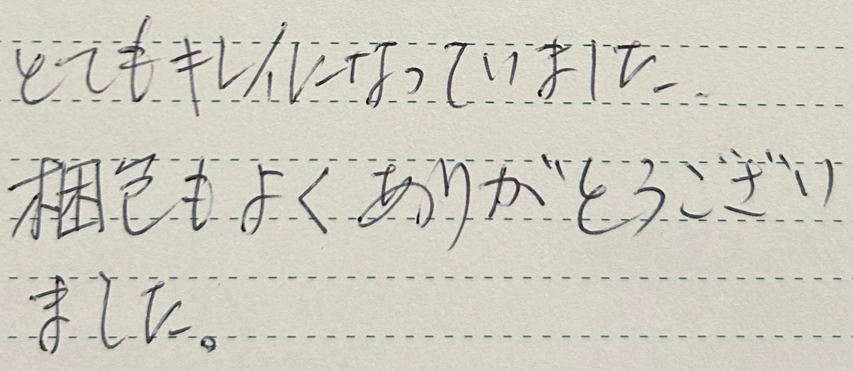 とてもキレイになっていました.
梱包もよくありがとうござい
ました。